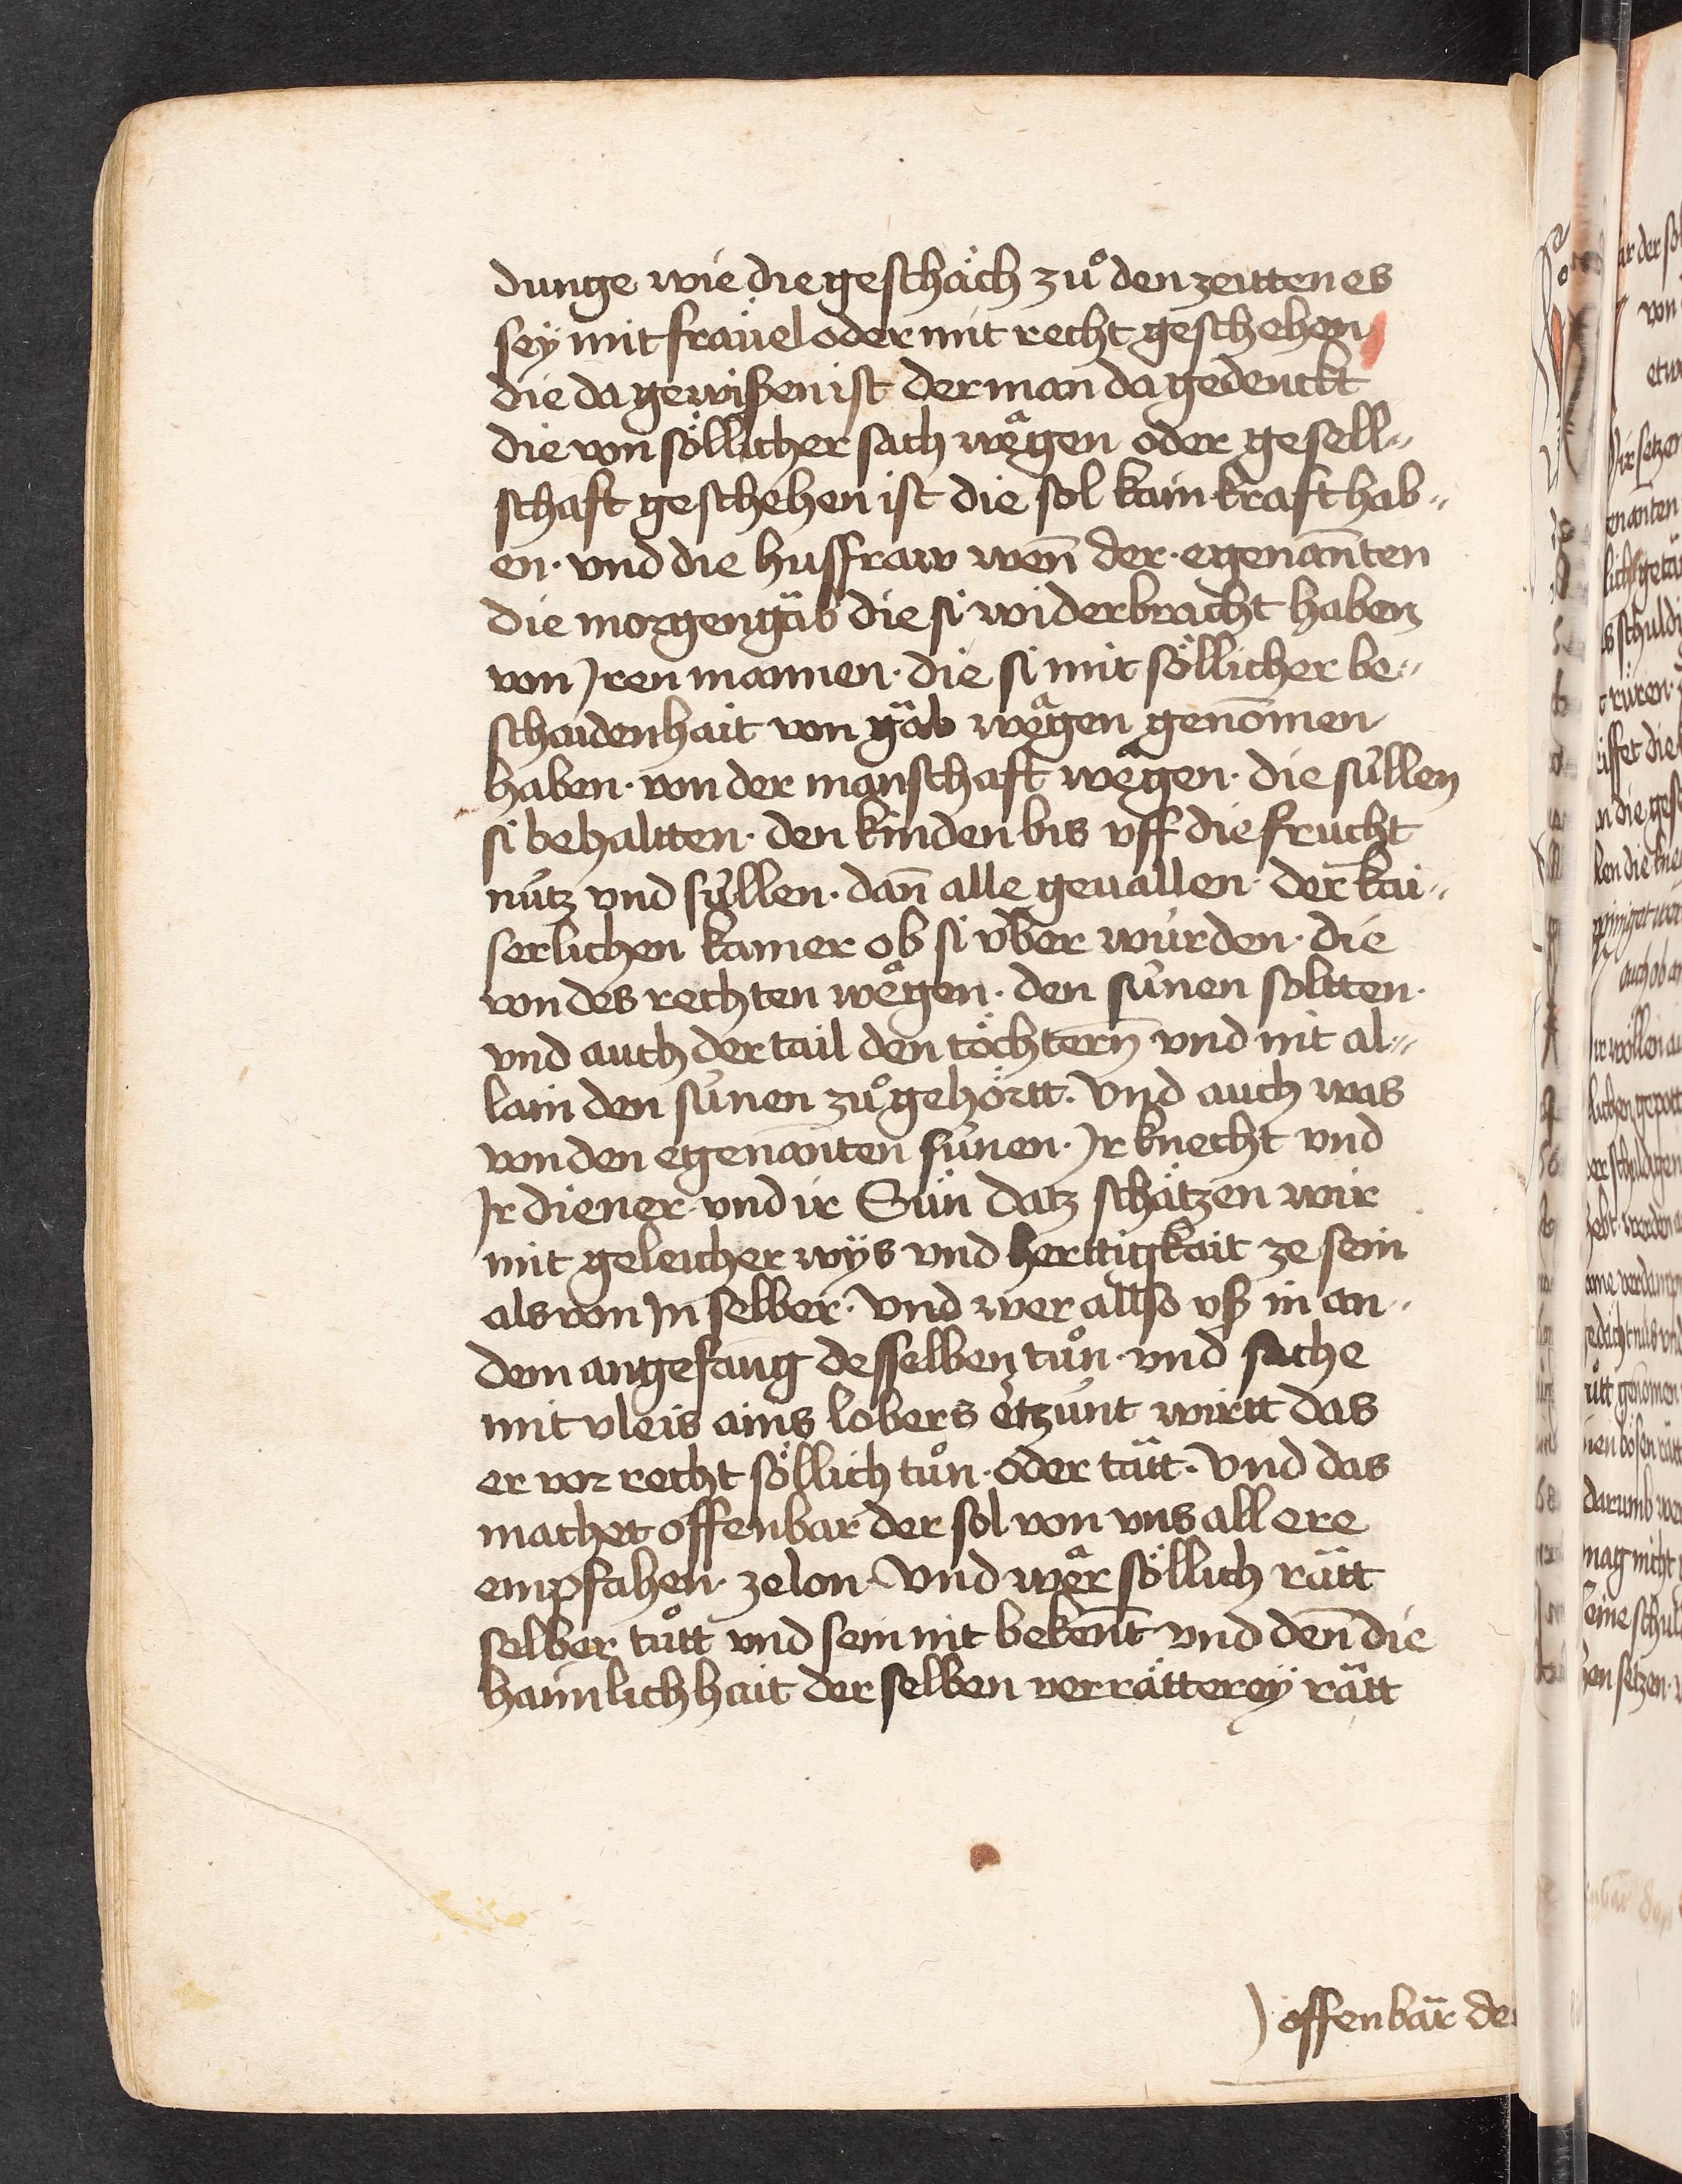 dunge wie die geschäch zuͦ den zeitten es
sey mit fräuel oder mit recht geschehen
die da gewißen ist der man da gedenckt
die von söllicher sach weͣgen oder gesell〃
schaft geschehen ist die sol kain kraft hab〃
en · vnd die husfraw wen̄ der · egenan̄ten
die morgengäb die si widerbracht haben
von Jren mannen · die si mit söllicher be〃
schaidenhait von gäb weͣgen genōmen
haben · von der manschaft weͣgen · die süllen
si behaltten · den kinden bis vff die frucht
nütz vnd süllen · dan̄ alle geuallen · der kai〃
serlichen kamer ob si v̈ber würden · die
von des rechten weͣgen · den sünen soltten ·
vnd auch der tail den töchtern̄ vnd nit al〃
lain den sünen zuͦgehörtt · Vnd auch was
von den egenanten sünen · Jr knecht vnd
Jr diener · vnd ir Sün datz schätzen wir
mit geleicher wÿs vnd herttigkait ze sein
als von Jn selber · Vnd wer allso vß in an〃
dem angefang desselben tuͦn · vnd sache
mit vleis ains lobers etzünt wirtt das
er vor recht söllich tuͦn · oder tätt · Vnd das
machet offenbar der sol von vns all ere
empfahen · ze lon · Vnd weͣr söllich rätt
selber tuͦtt vnd sein nit beken̄t · vnd den̄ die
haimlichhait der selben verrätterey rätt
offenbär de